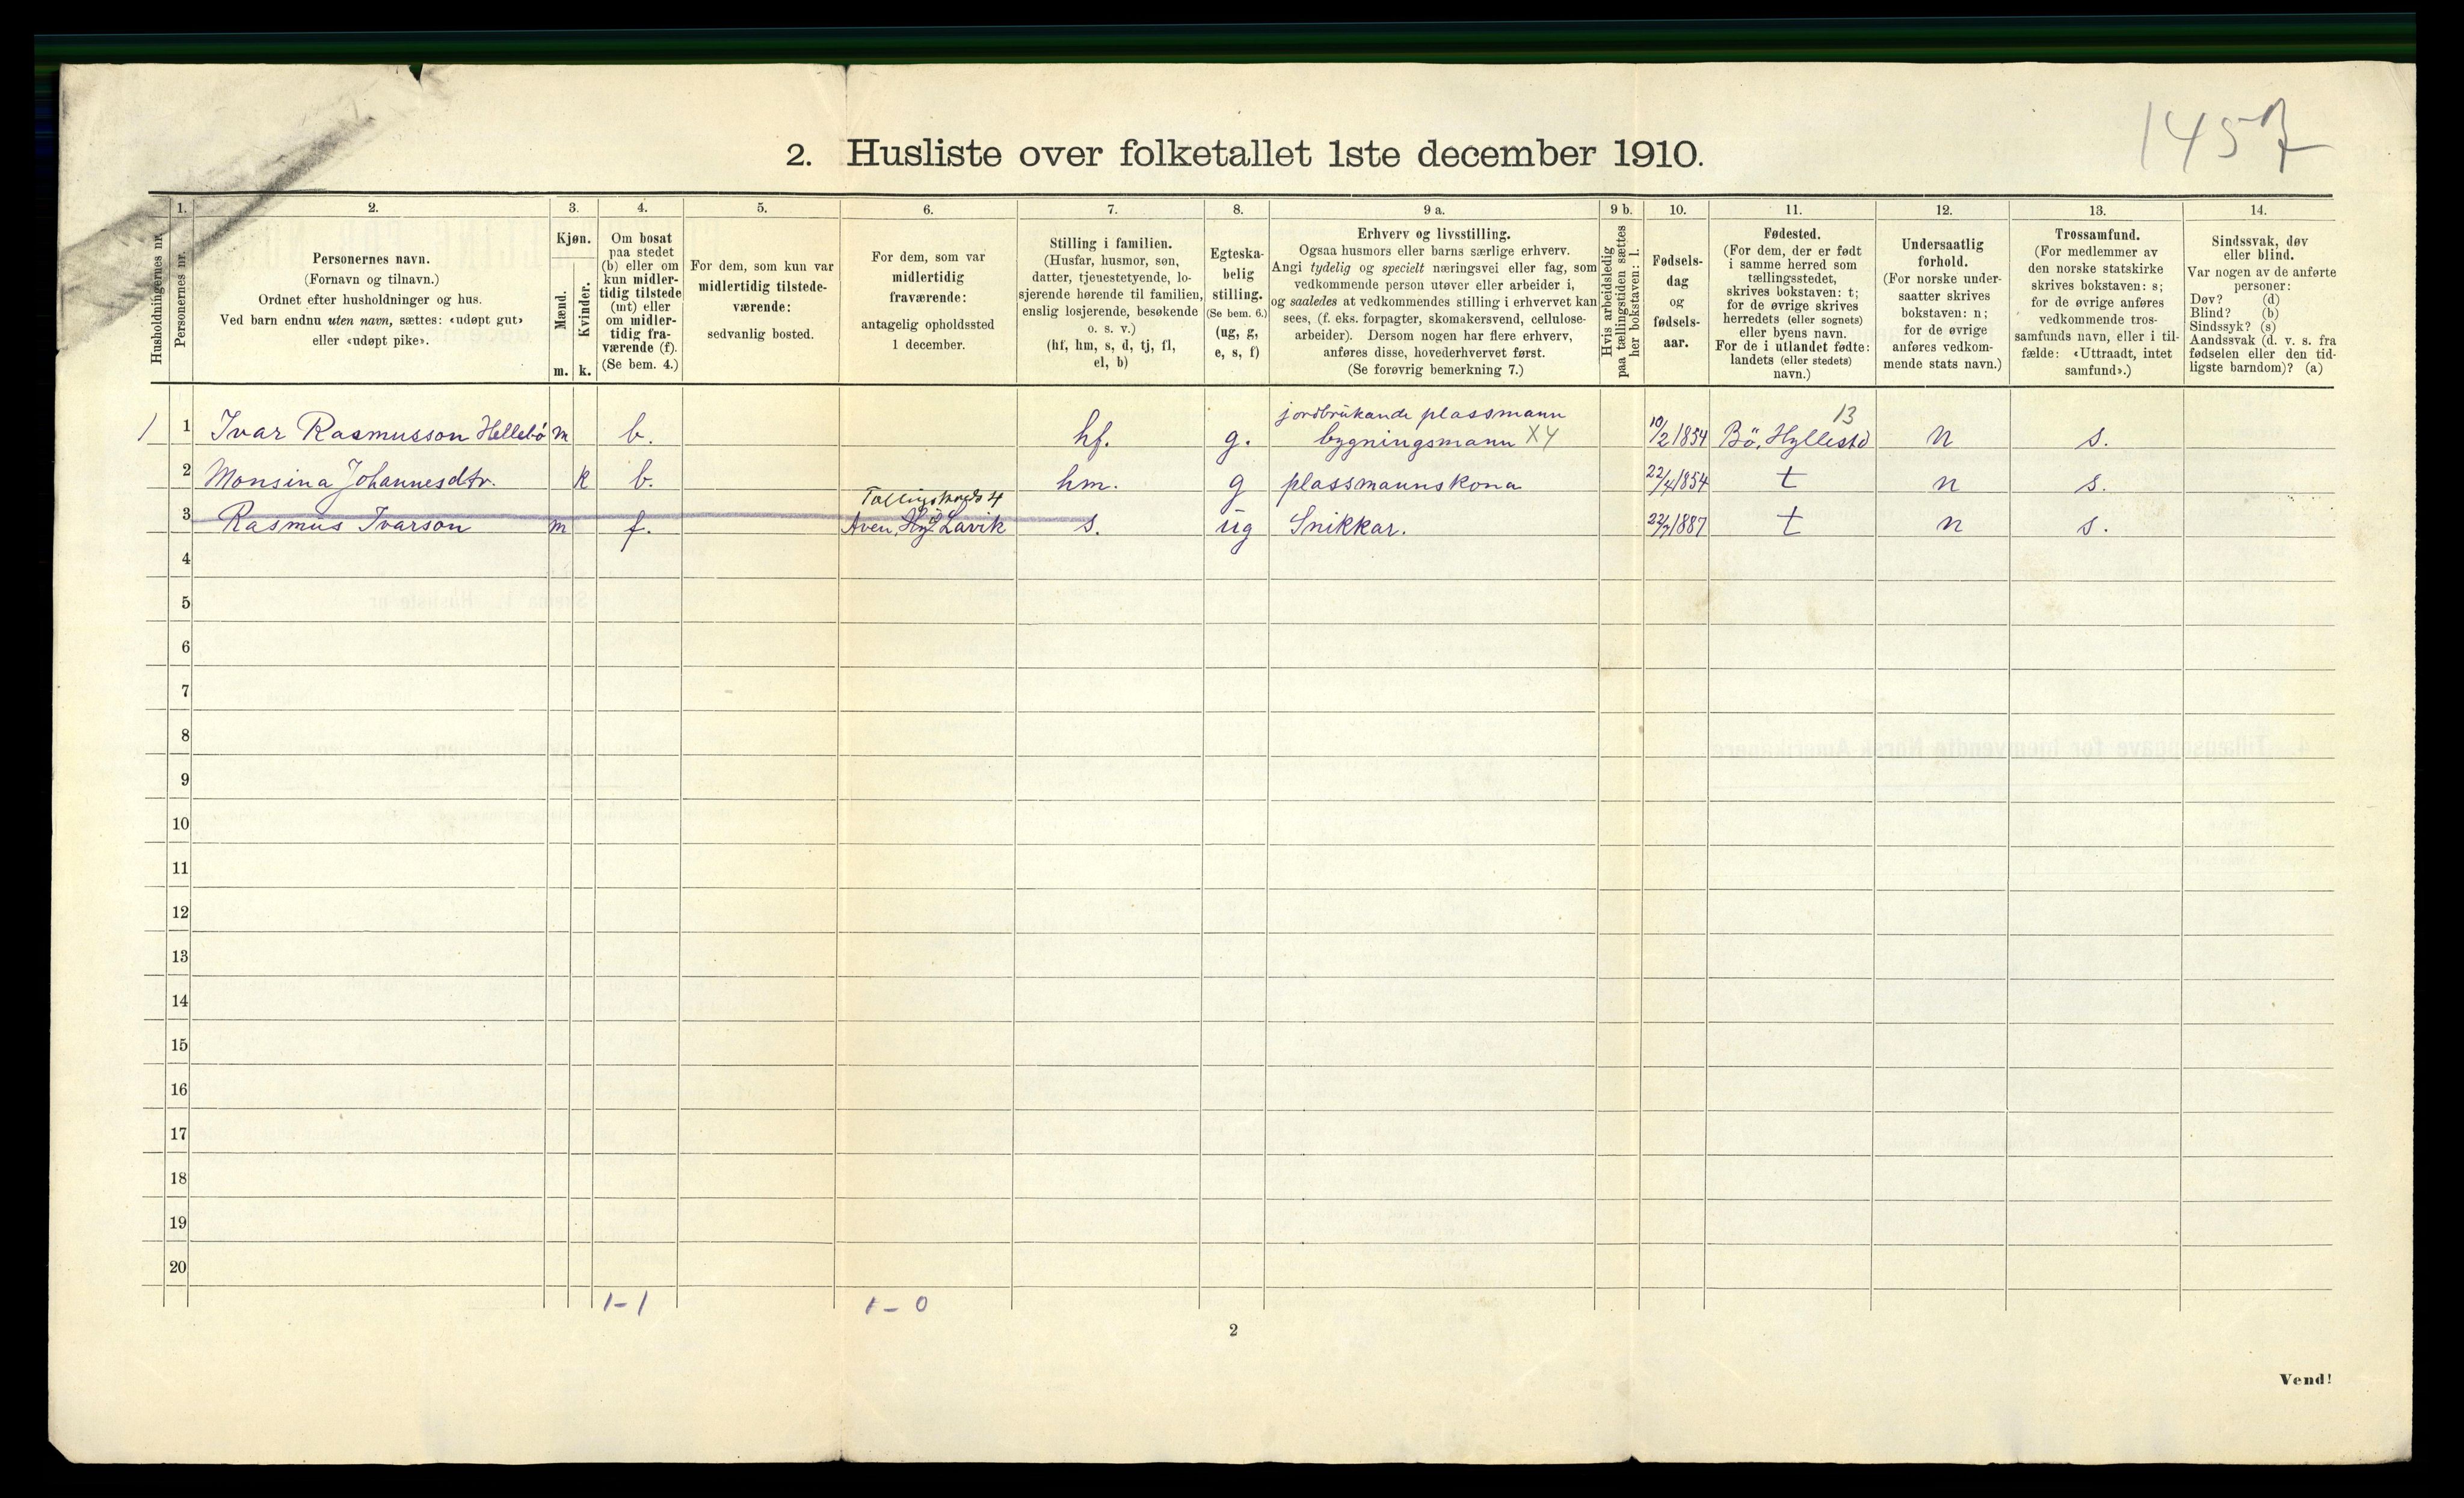 2. Husliste over folketallet 1ste december 1910.
1457
Husholdningernes nr.
1.
Personernes nr.
2.
Personernes navn.
(Fornavn og tilnavn.)
Ordnet efter husholdninger og hus.
Ved barn endnu uten navn, sættes: «udøpt gut»
eller «udøpt pike».
3.
Kjøn.
Mænd.
m.
Kvinder.
k.
4.
Om bosat
paa stedet
(b) eller om
kun midler-
tidig tilstede
(mt) eller
om midler-
tidig fra-
værende (f).
(Se bem. 4.)
5.
For dem, som kun var
midlertidig tilstede-
værende:
sedvanlig bosted.
6.
For dem, som var
midlertidig
fraværende:
antagelig opholdssted
1 december.
7.
Stilling i familien.
(Husfar, husmor, søn,
datter, tjenestetyende, lo-
sjerende hørende til familien,
enslig losjerende, besøkende
o. s. v.)
(hf, hm, s, d, tj, fl,
el, b)
8.
Egteska-
belig
stilling.
(Se bem. 6.)
(ug, g,
e, s, f)
9 a.
Erhverv og livsstilling.
Ogsaa husmors eller barns særlige erhverv.
Angi tydelig og specielt næringsvei eller fag, som
vedkommende person utøver eller arbeider i,
og saaledes at vedkommendes stilling i erhvervet kan
sees, (f. eks. forpagter, skomakersvend, cellulose-
arbeider). Dersom nogen har flere erhverv,
anføres disse, hovederhvervet først.
(Se forøvrig bemerkning 7.)
9 b.
Hvis arbeidsledig
paa tællingstiden sættes
her bokstaven: l.
10.
Fødsels-
dag
og
fødsels-
aar.
11.
Fødested.
(For dem, der er født
i samme herred som
tællingsstedet,
skrives bokstaven: t;
for de øvrige skrives
herredets (eller sognets)
eller byens navn.
For de i utlandet fødte:
landets (eller stedets)
navn.)
12.
Undersaatlig
forhold.
(For norske under-
saatter skrives
bokstaven: n;
for de øvrige
anføres vedkom-
mende stats navn.)
13.
Trossamfund.
(For medlemmer av
den norske statskirke
skrives bokstaven: s;
for de øvrige anføres
vedkommende tros-
samfunds navn, eller i til-
fælde: «Uttraadt, intet
samfund».)
14.
Sindssvak, døv
eller blind.
Var nogen av de anførte
personer:
Døv? (d)
Blind? (b)
Sindssyk? (s)
Aandssvak (d. v. s. fra
fødselen eller den tid-
ligste barndom)? (a)
jordbrukande plassmann 13
1 1 Ivar Rasmusson Hellebö m b. hf. g. bygningsmann X4 10/2 1854 Bö, Hyllestd n s.
2 Monsina Johannesdtr. k b. hm. g plassmannskona 22/4 1854 t n s.
3 Rasmus Ivarson m f. Lavik s. ug Snikkar. 22/7 1887 t n s.
4
5
6
7
8
9
10
11
12
13
14
15
16
17
18
19
20
1-1 1-0
2
Vend!